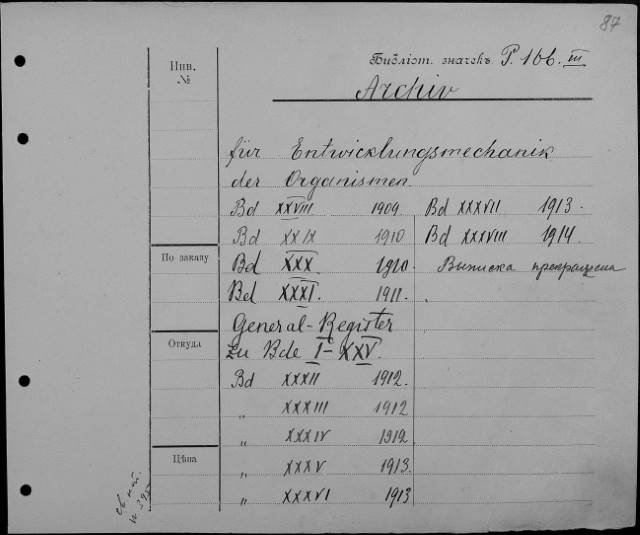 87
Библіот. значекъ P. 166. III
Инв.
№
Archiv
für Entwicklungsmechanik
der Organismen.
Bd XXVIII 1909
Bd XXIX 1910
Bd XXX 1910
Bd XXXI. 1911.
General-Register
zu Bde I-XXV.
Bd XXXII 1912.
„ XXXIII 1912
„ XXXIV 1912.
„ XXXV 1913.
„ XXXVI 1913
Bd XXXVII 1913.
Bd XXXVIII 1914.
Выписка прекращена
По заказу
Откуда
Цѣна